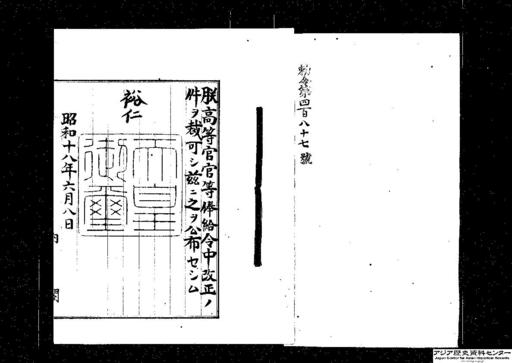 勅令第四百八十七號
朕高等官官等俸給令中改正ノ
件ヲ裁可シ玆ニ之ヲ公布セシム
裕仁
天皇
御璽
昭和十八年六月八日
内
閣
アジア歴史資料センター
Japan Center for Asian Historical Records